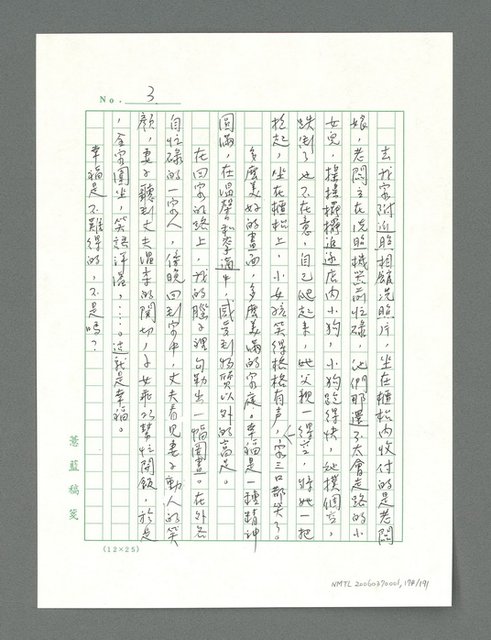 No. 3.
去找家附近照相館洗照片，坐在櫃枱內收付的是老闆
娘，老闆正在洗照機器前忙碌，他們那還不太會走路的小
女兒，搖搖擺擺追逐店內小狗，小狗跑得快，她撲個空，
跌倒了也不在意，自己爬起來，她父親一得空，將她一把
抱起，坐在櫃枱上，小女孩笑得格格有声，一家三口都笑了。
多麼美好的畫面，多麼美滿的家庭。幸福是一種精神
圓滿，在溫馨和幸福中，感受到物質以外的富足。
在回家的路上，我的腦子裡勾勒出一幅圖畫。在外各
自忙碌的一家人，傍晚回到家中，丈夫看見妻子動人的笑
顏，妻子聽到丈夫溫柔的關切，子女乖巧幫忙開飯，於是
，全家圍坐，笑語洋溢，……這就是幸福。
幸福是不難得的，不是嗎？
荖藍稿箋
(12×25)
NMTL 20060370001, 178/191